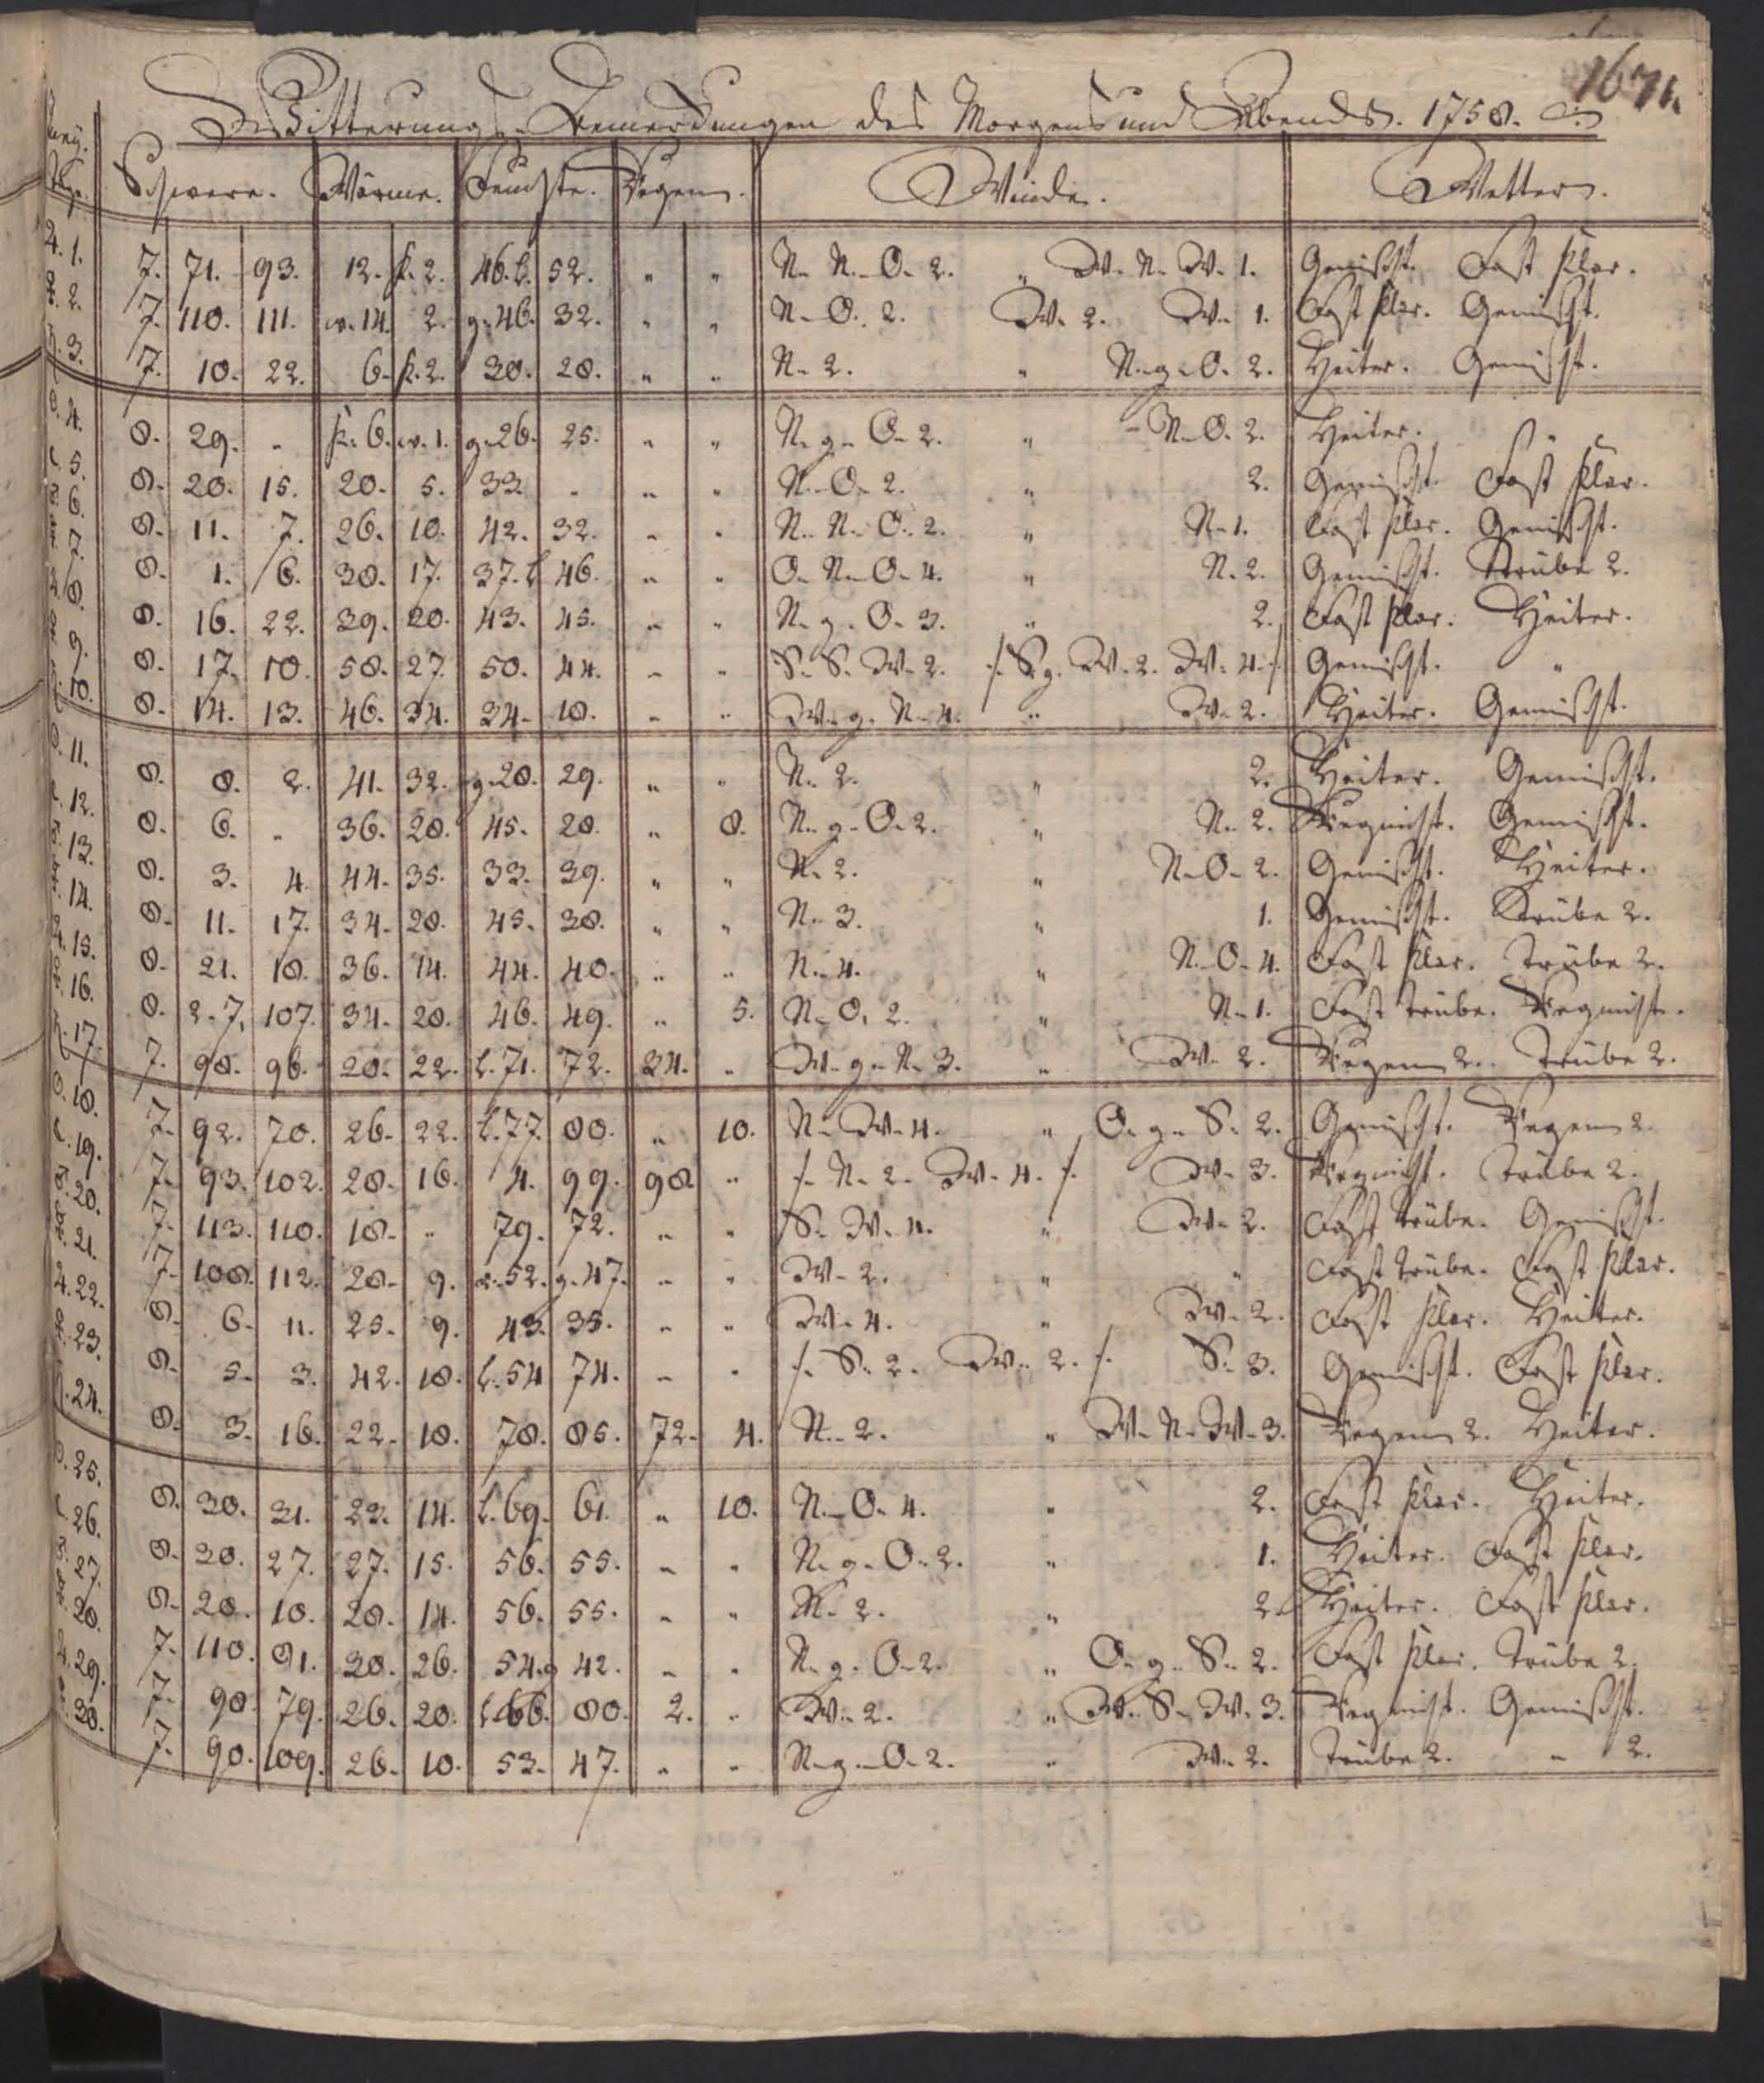 1671.
Witterungs-Bemerkungen des Morgens und Abends. 1758.
Juny. Tage. Schwere. Wärme. Feuchte. Regen. Winde. Wetter.
1. 7. 71. 93. 12. k. 2. 46. l. 52. " " N. N. O. 2. " W. N. W. 1. Gemischt. Fast klar.
2. 7. 110. 111. w. 14. 2. g. 46. 32. " " N. O. 2. W. 2. W. 1. Fast klar. Gemischt.
3. 7. 18. 22. 6. k. 2. 30. 28. " " N. 2. " N. g. O. 2. Heiter. Gemischt.
4. 8. 29. " k. 6. w. 1. g. 26. 25. " " N. g. O. 2. " N. O. 2. Heiter. "
5. 8. 20. 15. 20. 5. 33. " " " N. O. 2. " 2. Gemischt. Fast klar.
6. 8. 11. 7. 26. 10. 42. 32. " " N. N. O. 2. " N. 1. Fast klar. Gemischt.
7. 8. 1. 6. 38. 17. 37. l. 46. " " O. N. O. 4. " N. 2. Gemischt. Trübe 2.
8. 8. 16. 22. 39. 20. 43. 45. " " N. g. O. 3. " 2. Fast klar. Heiter.
9. 8. 17. 10. 58. 27. 50. 44. " " S. S. W. 2. /. S. g. W. 2. W. 4. /. Gemischt. "
10. 8. 14. 13. 46. 34. 34. 18. " " W. g. N. 4. " W. 2. Heiter. Gemischt.
11. 8. 8. 2. 41. 32. g. 28. 29. " " N. 2. " 2. Heiter. Gemischt.
12. 8. 6. " 36. 28. 45. 28. " 8. N. g. O. 2. " N. 2. Regnicht. Gemischt.
13. 8. 3. 4. 44. 35. 33. 39. " " N. 2. " N. O. 2. Gemischt. Heiter.
14. 8. 11. 17. 34. 28. 45. 38. " " N. 3. " 1. Gemischt. Trübe 2.
15. 8. 21. 18. 36. 14. 44. 40. " " N. 4. " N. O. 4. Fast klar. Trübe 2.
16. 8. 2. 7. 107. 34. 28. 46. 49. " 5. N. O. 2. " N. 1. Fast trübe. Regnicht.
17. 7. 98. 96. 28. 22. l. 71. 72. 34. " W. g. N. 3. " W. 2. Regen 2. Trübe 2.
18. 7. 92. 70. 26. 22. l. 77. 80. " 10. N. W. 4. " O. g. S. 2. Gemischt. Regen 2.
19. 7. 93. 102. 28. 16. 4. 99. 98. " /. N. 2. W. 4. /. W. 3. Regnicht. Trübe 2.
20. 7. 113. 110. 18. " 79. 72. " " S. W. 4. " W. 2. Fast trübe. Gemischt.
21. 7. 108. 112. 28. 9. 52. g. 47. " " W. 2. " " Fast trübe. Fast klar.
22. 8. 6. 11. 25. 9. 43. 35. " " W. 4. " W. 2. Fast klar. Heiter.
23. 8. 5. 3. 42. 18. l. 54. 74. " " /. S. 2. W. 2. /. S. 3. Gemischt. Fast klar.
24. 8. 3. 16. 22. 18. 78. 85. 72. 4. N. 2. " W. N. W. 3. Regen 2. Heiter.
25. 8. 30. 31. 23. 14. l. 69. 61. " 10. N. O. 4. " 2. Fast klar. Heiter.
26. 8. 30. 27. 27. 15. 56. 55. " " N. g. O. 2. " 1. Heiter. Fast klar.
27. 8. 20. 18. 28. 14. 56. 55. " " N. 2. " 2. Heiter. Fast klar.
28. 7. 110. 81. 30. 26. 54. g 42. " " N. g. O. 2. " O. g. S. 2. Fast klar. Trübe 2.
29. 7. 98. 79. 26. 20. l. 66. 80. 2. " W. 2. " W. S. W. 3. Regnicht. Gemischt.
30. 7. 90. 109. 26. 10. 53. 47. " " N. g. O. 2. " W. 2. Trübe 2. " 2.